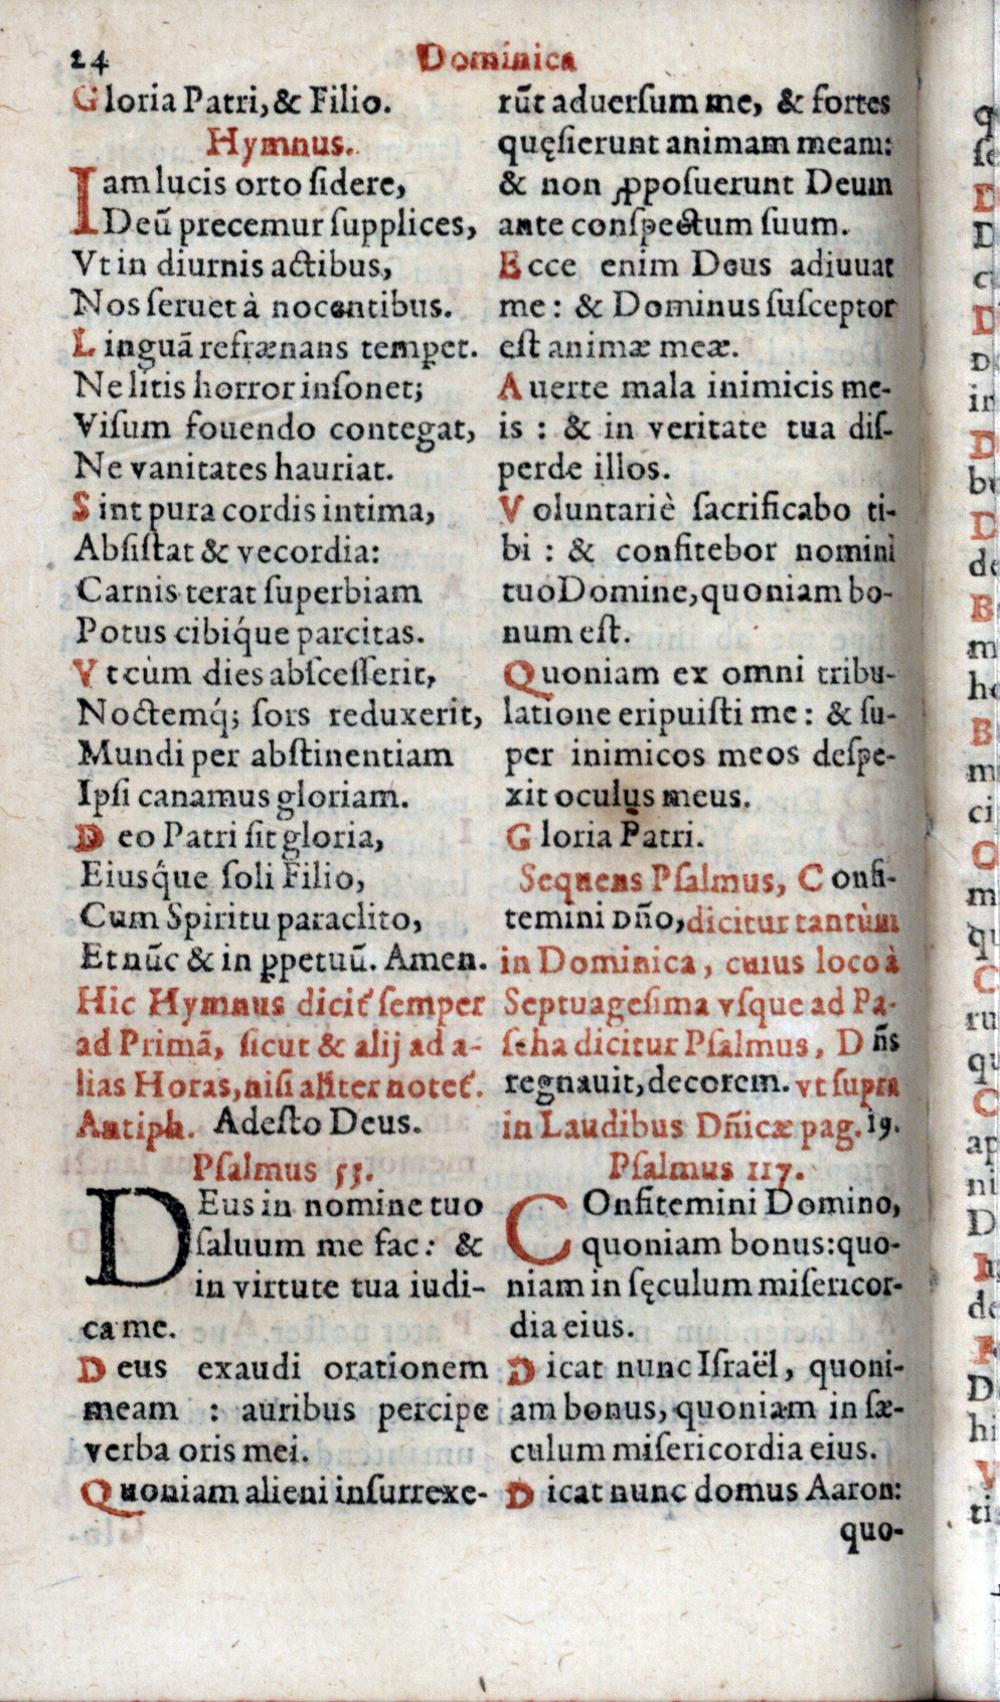 24
Dominica
Gloria Patri, & Filio.
Hymnus.
Iam lucis orto ſidere,
Deū precemur ſupplices,
Vt in diurnis actibus,
Nos ſeruet à nocentibus.
Linguā refrænans temperet.
Ne litis horror inſonet;
Viſum fouendo contegat,
Ne vanitates hauriat.
Sint pura cordis intima,
Abſiſtat & vecordia:
Carnis terat ſuperbiam
Potus cibiq́ue parcitas.
Vt cùm dies abſceſſerit,
Noctemq́; ſors reduxerit,
Mundi per abſtinentiam
Ipſi canamus gloriam.
Deo Patri ſit gloria,
Eiusq́ue ſoli Filio,
Cum Spiritu paraclito,
Et nūc & in ꝑpetuū. Amen.
Hic Hymnus dicit᷑ ſemper
ad Primā, ſicut & alij ad a-
lias Horas, niſi aliter notet᷑.
Antiph. Adeſto Deus.
Pſalmus 53.
DEus in nomine tuo
ſaluum me fac: &
in virtute tua iudi-
ca me.
Deus exaudi orationem
meam : auribus percipe
verba oris mei.
Quoniam alieni inſurrexe-
rūt aduerſum me, & fortes
quęſierunt animam meam:
& non ꝓpoſuerunt Deum
ante conſpectum ſuum.
Ecce enim Deus adiuuat
me: & Dominus ſuſceptor
eſt animæ meæ.
Auerte mala inimicis me-
is : & in veritate tua diſ-
perde illos.
Voluntariè ſacrificabo ti-
bi : & confitebor nomini
tuo Domine, quoniam bo-
num eſt.
Quoniam ex omni tribu-
latione eripuiſti me: & ſu-
per inimicos meos deſpe-
xit oculus meus.
Gloria Patri.
Sequens Pſalmus, Confi-
temini Dño, dicitur tantùm
in Dominica, cuius loco à
Septuageſima vſque ad Pa-
ſcha dicitur Pſalmus, Dñs
regnauit, decorem. vt ſupra
in Laudibus Dñicæ pag. 19.
Pſalmus 117.
COnfitemini Domino,
quoniam bonus: quo-
niam in ſęculum miſericor-
dia eius.
Dicat nunc Iſraël, quoni-
am bonus, quoniam in ſæ-
culum miſericordia eius.
Dicat nunc domus Aaron:
quo-